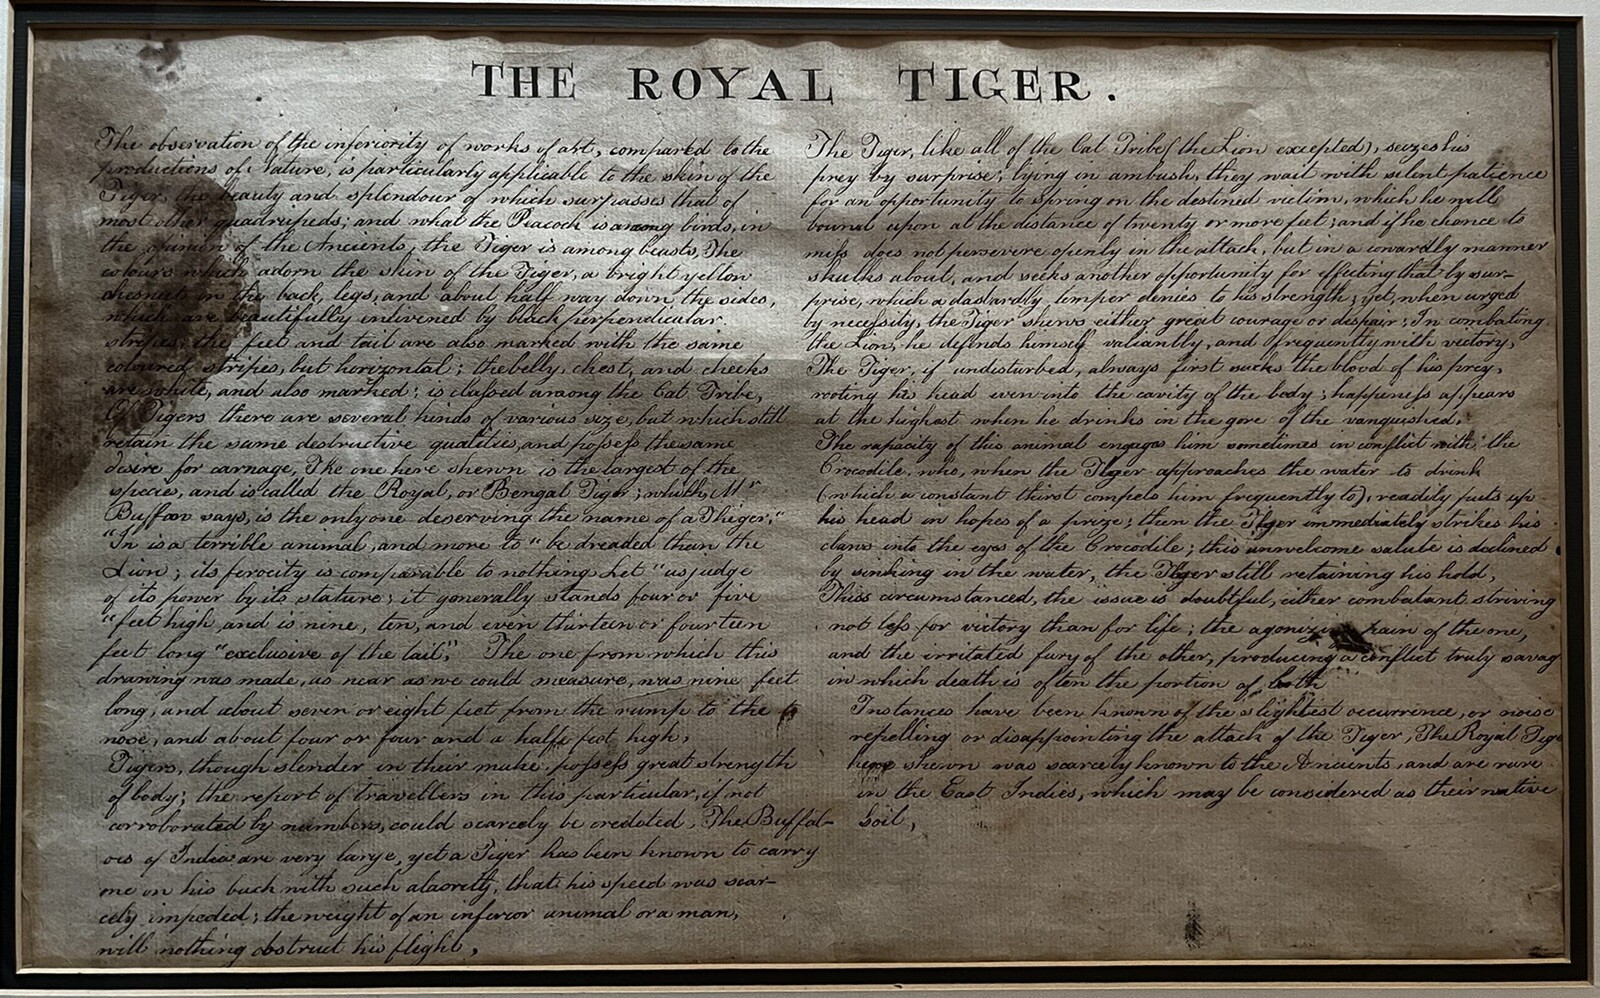 THE ROYAL TIGER.
The observation of the inferiority of works of art, compared to the
productions of Nature, is particularly applicable to the skin of the
Tiger, the beauty and splendour of which surpasses that of
most other quadrupeds; and what the Peacock is among birds, in
the opinion of the Ancients, the Tiger is among beasts, The
colours which adorn the skin of the Tiger, a bright yellow
chesnut in the back, legs, and about half way down the sides,
which are beautifully inlivened by black perpendicular
stripes; the feet and tail are also marked with the same
coloured stripes, but horizontal; the belly, chest, and cheeks
are white, and also marked; is classed among the Cat Tribe,
Of Tigers there are several kinds of various size, but which still
retain the same destructive qualities, and possess the same
desire for carnage, The one here shewn is the largest of the
species, and is called the Royal, or Bengal Tiger; which, Mr
Buffon says, is the only one deserving the name of a Thiger,"
"In is a terrible animal, and more to "be dreaded than the
Lion; its ferocity is comparable to nothing Let "us judge
of its power by its stature; it generally stands four or five
"feet high, and is nine, ten, and even thirteen or fourteen
feet long "exclusive of the tail," The one from which this
drawing was made, as near as we could measure, was nine feet
long, and about seven or eight feet from the rump to the
nose, and about four or four and a half foot high,
Tigers, though slender in their make, possess great strength
of body; the report of travellers in this particular, if not
corroborated by numbers, could scarcely be credited, The Buffal-
oes of India are very large, yet a Tiger has been known to carry
one on his back with such alacrity, that his speed was scar-
cely impeded; the weight of an inferior animal or a man,
will nothing obstruct his flight,
The Tiger, like all of the Cat Tribe (the Lion excepted), seizes his
prey by surprise; lying in ambush, they wait with silent patience
for an opportunity to spring on the destined victim, which he will
bound upon at the distance of twenty or more feet; and if he chance to
miss does not persevere openly in the attack, but in a cowardly manner
skulks about, and seeks another opportunity for effecting that by sur-
prise, which a dastardly temper denies to his strength; yet, when urged
by necessity, the Tiger shews either great courage or despair; In combating
the Lion, he defends himself valiantly, and frequently with victory,
The Tiger, if undisturbed, always first sucks the blood of his prey,
roting his head even into the cavity of the body; happiness appears
at the highest when he drinks in the gore of the vanquished,
The rapacity of this animal engages him sometimes in conflict with the
Crocodile, who, when the Tiger approaches the water to drink
(which a constant thirst compels him frequently to), readily puts up
his head in hopes of a prize; then the Tiger immediately strikes his
claws into the eyes of the Crocodile; this unwelcome salute is declined
by sinking in the water, the Tiger still retaining his hold,
Thiss circumstanced, the issue is doubtful, either combatant striving
not less for victory than for life; the agonizing pain of the one,
and the irritated fury of the other, producing a conflict truly savag
in which death is often the portion of both
Instances have been known of the slightest occurrence, or noise
repelling or disappointing the attack of the Tiger, The Royal Tige
here shewn was scarcely known to the Ancients, and are rare
in the East Indies, which may be considered as their native
Soil,